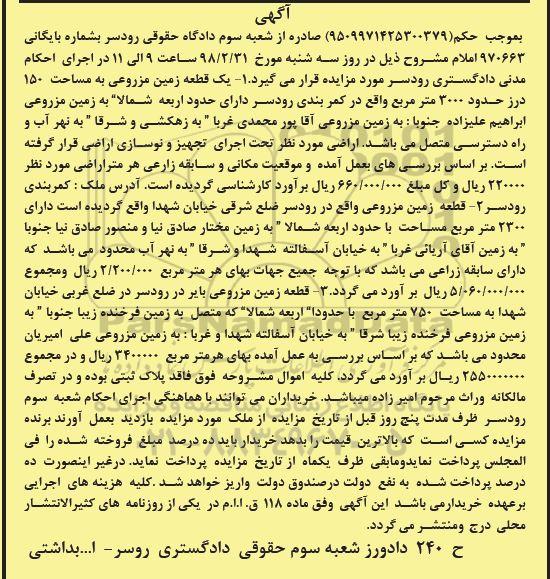 آگهی
بموجب حکم(۹۵۰۹۹۷۱۴۲۵۳۰۰۳۷۹) صادره از شعبه سوم دادگاه حقوقی رودسر بشماره بایگانی
۹۷۰۶۶۳ املام مشروح ذیل در روز سه شنبه مورخ ۹۸/۲/۳۱ ساعت ۹ الی ۱۱ در اجرای احکام
مدنی دادگستری رودسر مورد مزایده قرار می گیرد.۱- یک قطعه زمین مزروعی به مساحت ۱۵۰
درز حدود ۳۰۰۰ متر مربع واقع در کمر بندی رودسر دارای حدود اربعه شمالا" به زمین مزروعی
ابراهیم علیزاده جنوبا : به زمین مزروعی آقا پور محمدی غربا " به زهکشی و شرقا " به نهر آب و
راه دسترسی متصل می باشد. اراضی مورد نظر تحت اجرای تجهیز و نوسازی اراضی قرار گرفته
است. بر اساس بررسی های بعمل آمده و موقعیت مکانی و سابقه زارعی هر متراراضی مورد نظر
۲۲۰۰۰۰ ریال و کل مبلغ ۶۶۰/۰۰۰/۰۰۰ ریال برآورد کارشناسی گردیده است. آدرس ملک : کمربندی
رودسر۲- قطعه زمین مزروعی واقع در رودسر ضلع شرقی خیابان شهدا واقع گردیده است دارای
۲۳۰۰ متر مربع مساحت با حدود اربعه شمالا " به زمین مختار صادق نیا و منصور صادق نیا جنوبا
" به زمین آقای آریائی غربا " به خیابان آسفالته شهدا و شرقا " به نهر آب محدود می باشد که
دارای سابقه زراعی می باشد که با توجه جمیع جهات بهای هر متر مربع ۲/۲۰۰/۰۰۰ ریال ومجموع
۵/۰۶۰/۰۰۰/۰۰۰ ریال بر آورد می گردد.۳- قطعه زمین مزروعی بایر در رودسر در ضلع غربی خیابان
شهدا به مساحت ۷۵۰ متر مربع با حدودا" اربعه شمالا" که متصل به زمین فرخنده زیبا جنوبا "به
زمین مزروعی فرخنده زیبا شرقا " به خیابان آسفالته شهدا و غربا : به زمین مزروعی علی امیریان
محدود می باشد که بر اساس بررسی به عمل آمده بهای هرمتر مربع ۳۴۰۰۰۰۰ ریال و در مجموع
۲۵۵۰۰۰۰۰۰۰ ریال بر آورد می گردد. کلیه اموال مشروحه فوق فاقد پلاک ثبتی بوده و در تصرف
مالکانه وراث مرحوم امیر زاده میباشد. خریداران می توانند با هماهنگی اجرای احکام شعبه سوم
رودسر ظرف مدت پنج روز قبل از تاریخ مزایده از ملک مورد مزایده بازدید بعمل آورند برنده
مزایده کسی است که بالاترین قیمت را بدهد خریدار باید ده درصد مبلغ فروخته شده را فی
المجلس پرداخت نمایدومابقی ظرف یکماه از تاریخ مزایده پرداخت نماید. درغیر اینصورت ده
درصد پرداخت شده به نفع دولت درصندوق دولت واریز خواهد شد .کلیه هزینه های اجرایی
برعهده خریدارمی باشد این آگهی وفق ماده ۱۱۸ ق. ا.ا.م در یکی از روزنامه های کثیرالانتشار
محلی درج ومنتشر می گردد.
ح ۲۴۰ دادورز شعبه سوم حقوقی دادگستری روسر- ا...بداشتی
ParsNamadData